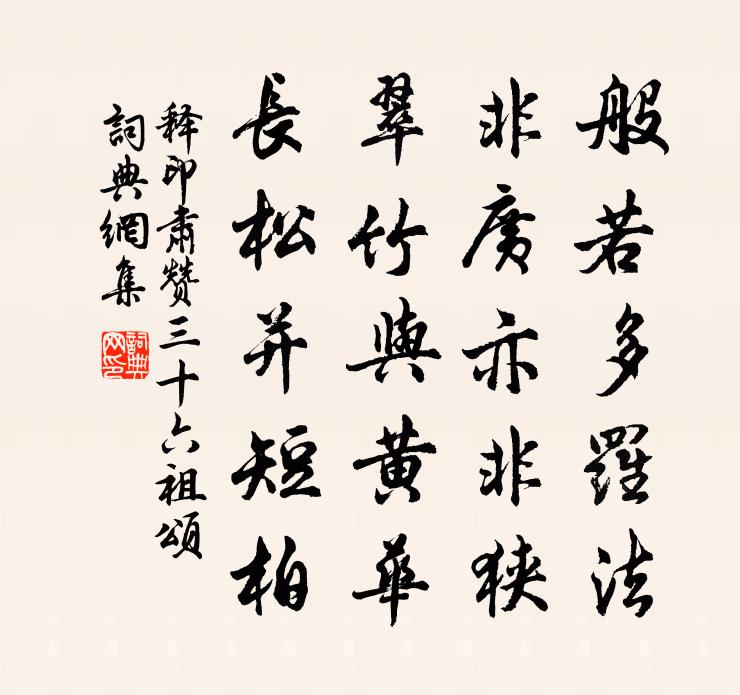 般若多羅法
非廣亦非狹
翠竹與黃華
長松并短柏
釋印肅贊三十六祖頌
詞典網集
詞典網印